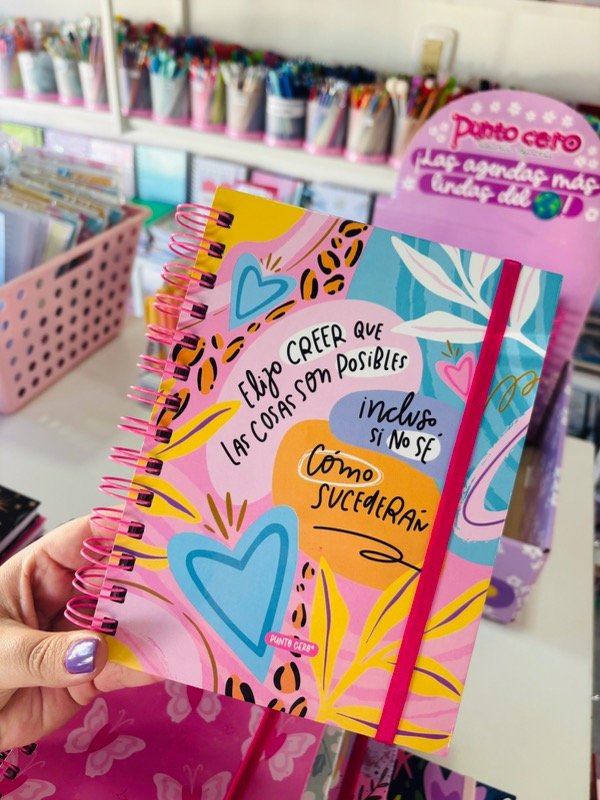 Punto cero
¡Las agendas más
lindas del !
Elijo CREER QUE
LAS COSAS SON POSIBLES
inclusó
Si NO SÉ
CÓMO
SUCEDERÁN
PUNTO CERO®